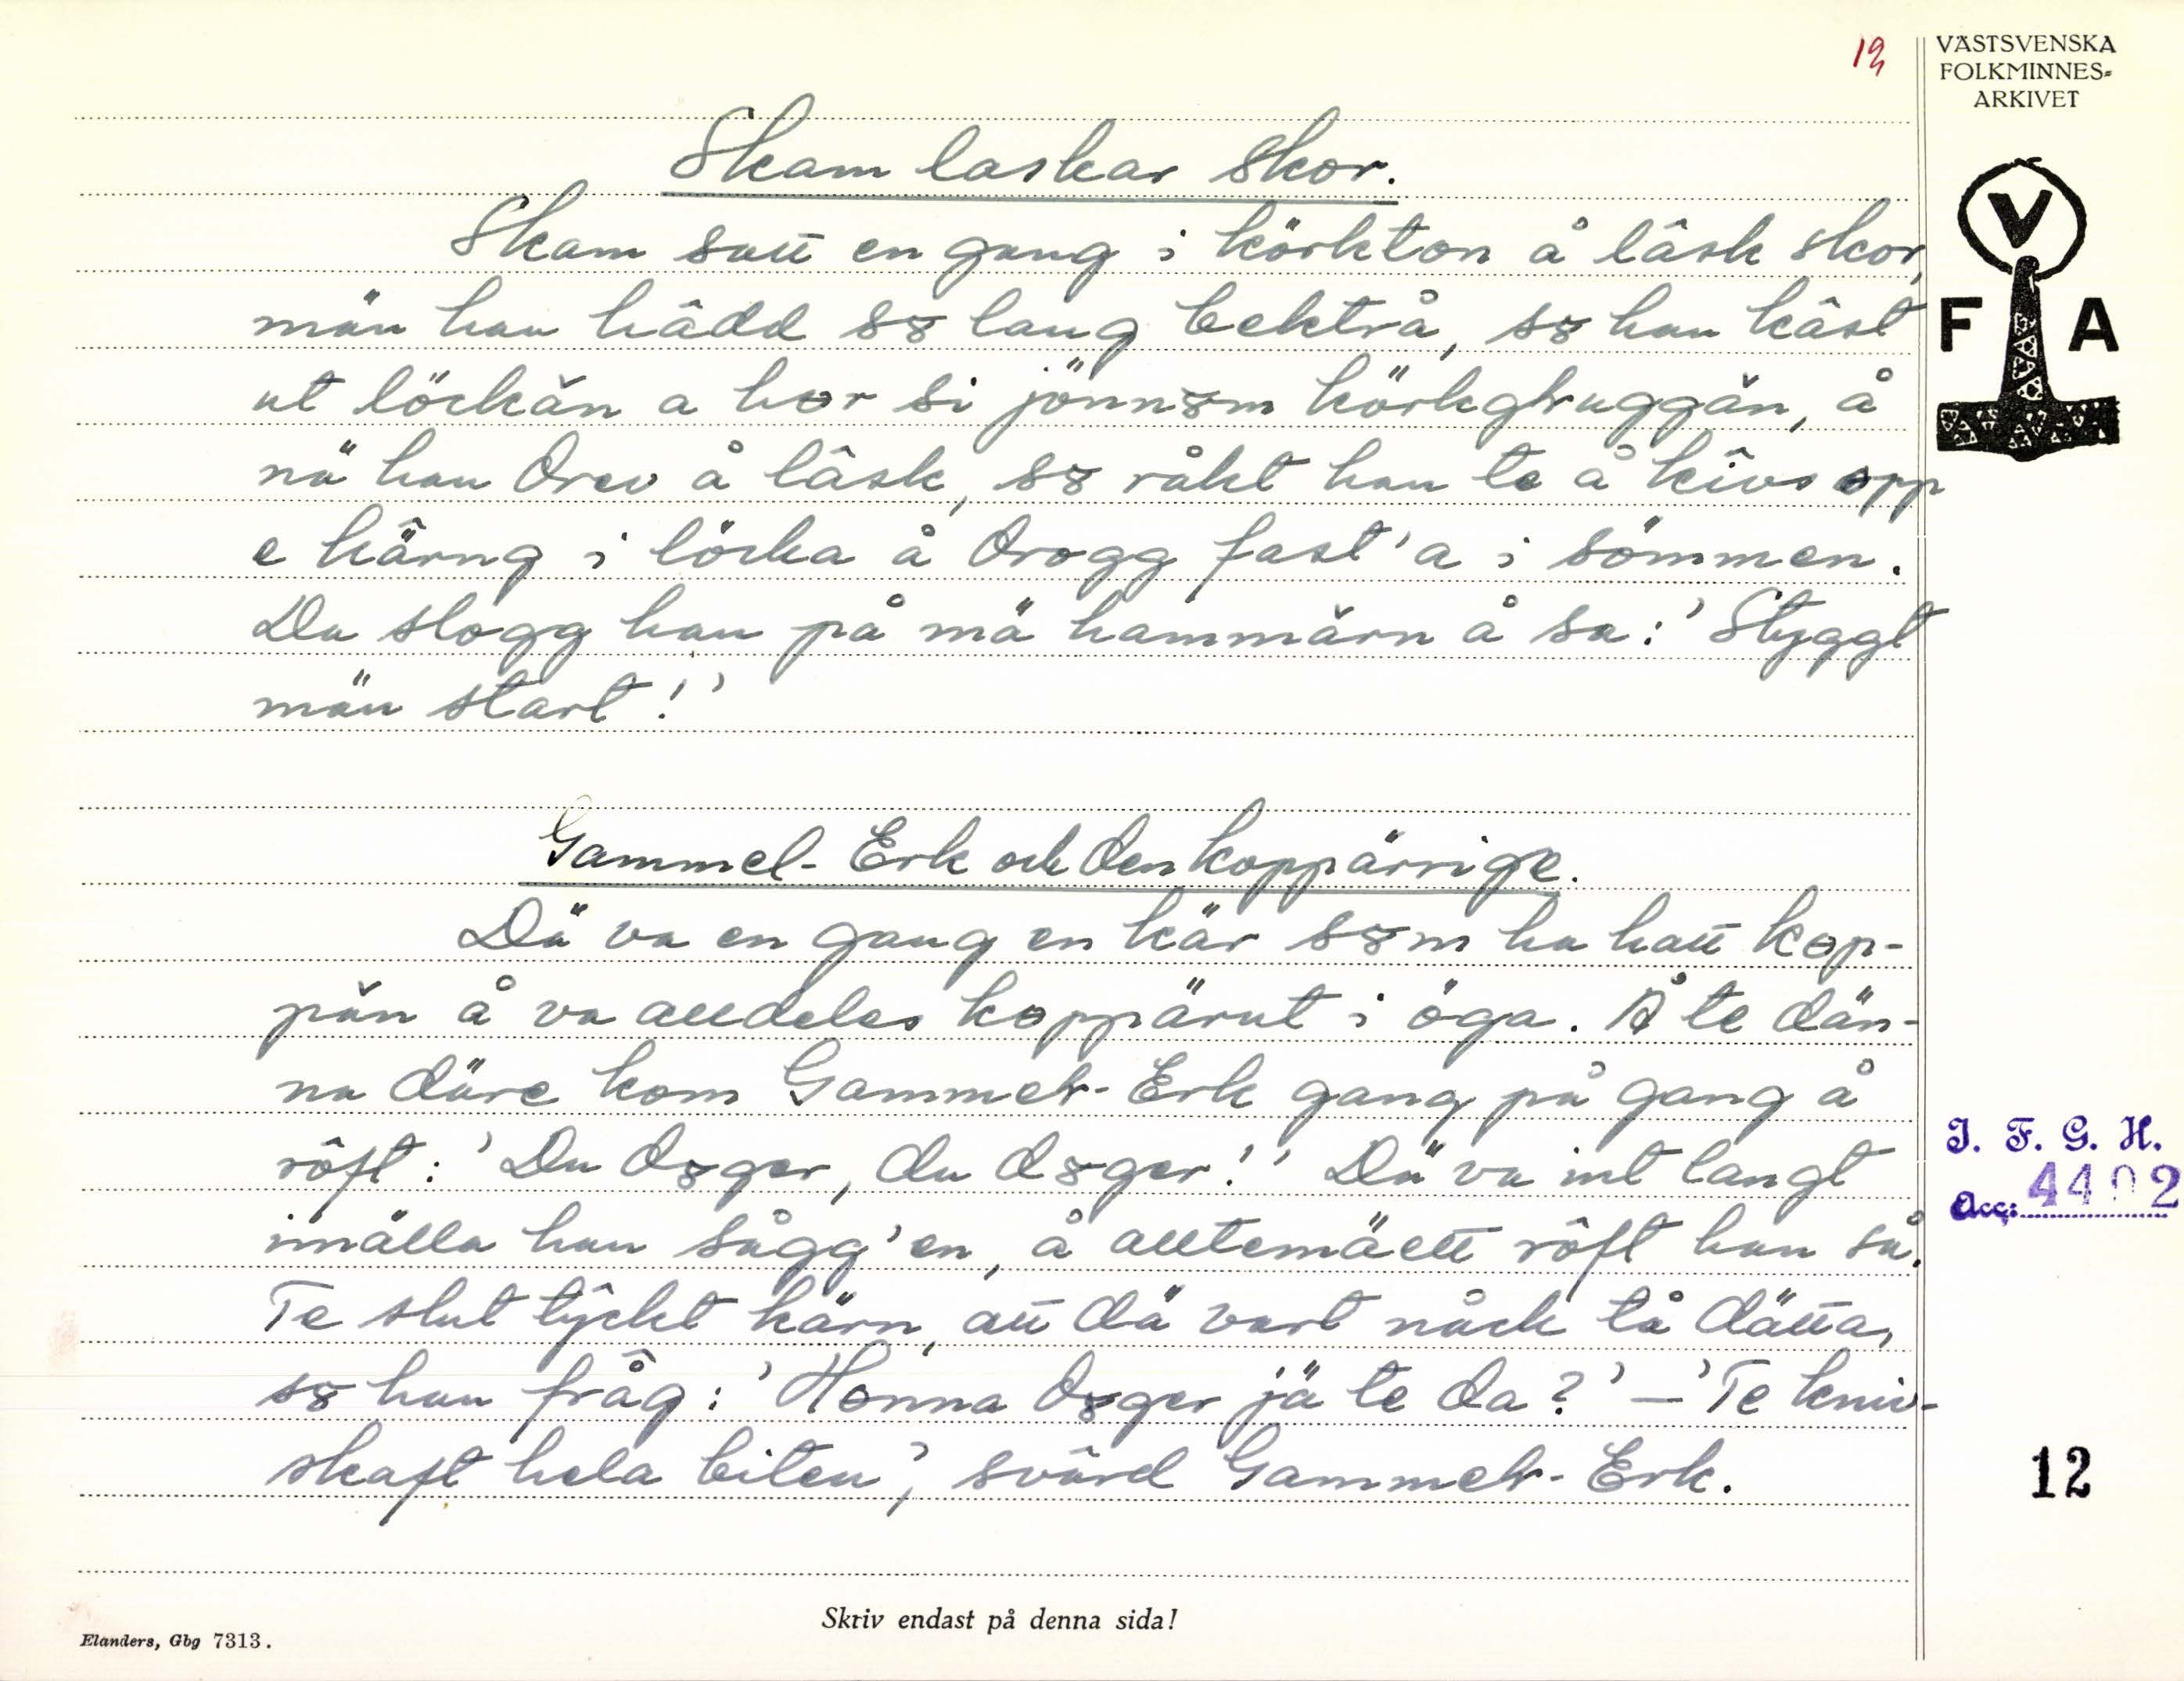 12
VÄSTSVENSKA
FOLKMINNES-
ARKIVET
V
F A
Skam laskar skor.
Skam satt en gang i körkton å lâsk skor,
män han hâdd sɷ lang becktrå, sɷ han kâst
ut löckăn a hɵr si jönnɷm körkgɫuggăn, å
nä han drev å lâsk, sɷ råkt han te å kîvs ɵpp
e kärng i löcka å drogg fast'a i sömmen.
Da slogg han på mä hammărn å sa: 'Styggt
män start!'
Gammel-Erk och den koppärrige.
Dä va en gang en kär sɷm ha hatt kɵp-
păn å va alldeles kɵppärut i öga. Å te dän-
na däre kom Gammeɫ-Erk gang på gang å
rôft: 'Du dɷger, du dɷger!' Dä va int langt
imälla han sågg'en, å alltemäett rôft han så.
Te slut tŷckt kärn, att dä vart nåck tå dätta,
sɷ han frâg: 'Hɵnna dɷger jä te da?' – 'Te kniv-
skaft hela biten', svârd Gammeɫ-Erk.
I. F. G. H.
Acc: 4402
12
Skriv endast på denna sida!
Elanders, Gbg 7313.